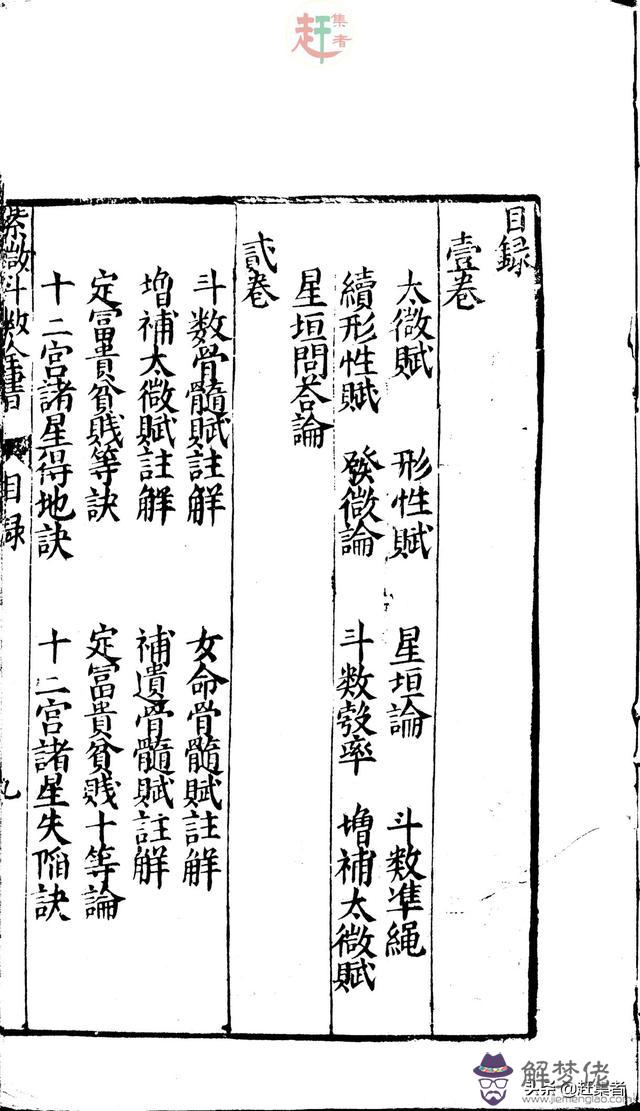 赶集者
目録
壹卷
太微賦 形性賦 星垣論 斗数準繩
續形性賦 發微論 斗数彀率 增補太微賦
星垣問答論
貳卷
斗数骨髓賦註解 女命骨髓賦註解
增補太微賦註解 補遺骨髓賦註解
定冨貴貧賤等訣 定冨貴貧賎十等論
十二宮諸星得地訣 十二宮諸星失陷訣
紫微斗数全書 目録
解梦佬
头条@赶集者
www.jiemenglao.com